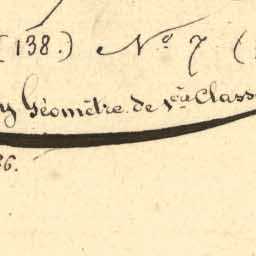 (138.) N.º 7 (
y Géomêtre de 1.ère Class
36.